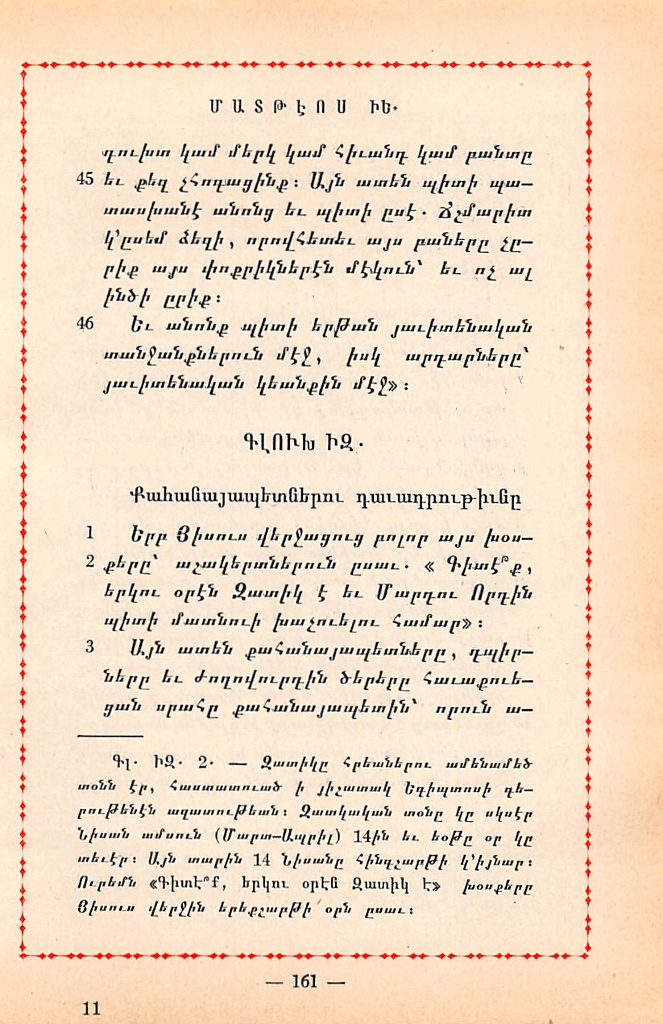 ՄԱՏԹԷՈՍ ԻԵ.
դուխտ կամ մերկ կամ հիւանդ կամ բանտը
45 եւ քեզ չհոգացինք: Այն ատեն պիտի պա—
տասխանէ անոնց եւ պիտի ըսէ. Ճշմարիտ
կ՚ըսեմ ձեզի, որովհետեւ այս բաները չը—
րիք այս փոքրիկներէն մէկուն՝ եւ ոչ ալ
ինծի ըրիք:
46 Եւ անոնք պիտի երթան յաւիտենական
տանջանքներուն մէջ, իսկ արդարները՝
յաւիտենական կեանքին մէջ»:
ԳԼՈՒԽ ԻԶ.
Քահանայապետներու դաւադրութիւնը
1 Երբ Յիսուս վերջացուց բոլոր այս խօս—
2 քերը՝ աշակերտներուն ըսաւ. « Գիտէ՞ք,
երկու օրէն Զատիկ է եւ Մարդու Որդին
պիտի մատնուի խաչուելու համար»:
3 Այն ատեն քահանայապետները, դպիր—
ները եւ ժողովուրդին ծերերը հաւաքուե—
ցան սրահը քահանայապետին՝ որուն ա—
Գլ. ԻԶ. 2. — Զատիկը հրեաներու ամենամեծ
տօնն էր, հաստատուած ի յիշատակ Եգիպտոսի գե—
րութենէն ազատութեան: Զատկական տօնը կը սկսէր
Նիսան ամսուն (Մարտ—Ապրիլ) 14ին եւ եօթը օր կը
տեւէր: Այն տարին 14 Նիսանը հինգշաբթի կ՚իյնար:
Ուրեմն «Գիտէ՞ք, երկու օրէն Զատիկ է» խօսքերը
Յիսուս վերջին երեքշաբթի օրն ըսաւ:
— 161 —
11